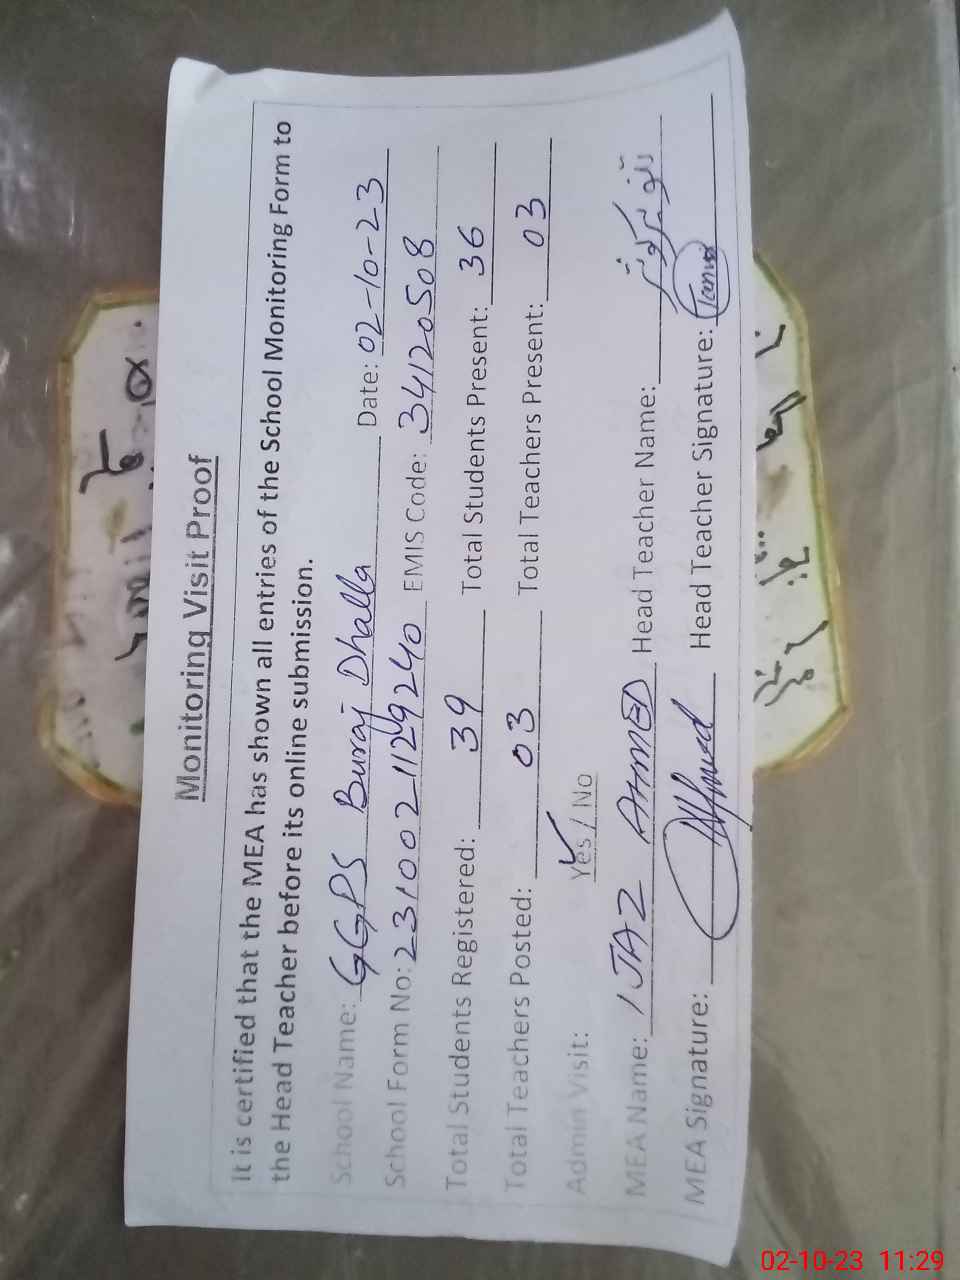 Monitoring Visit Proof
It is certified that the MEA has shown all entries of the School Monitoring Form to
the Head Teacher before its online submission.
School Name: GGPS Buraj Dhalla Date: 02-10-23
School Form No: 2310021129240 EMIS Code: 34120508
Total Students Registered: 39 Total Students Present: 36
Total Teachers Posted: 03 Total Teachers Present: 03
Admin Visit: Yes / No
MEA Name: IJAZ AHMED Head Teacher Name:
MEA Signature: Ahmed Head Teacher Signature:
02-10-23 11:29